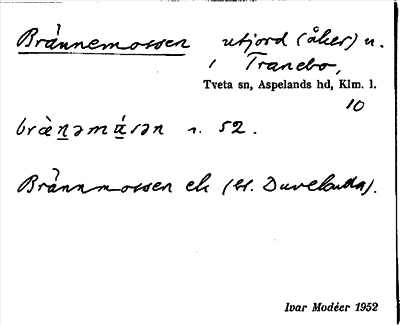 Brännemossen utjord (åker) u.
i Tranebo,
Tveta sn, Aspelands hd, Klm. l.
10
bràn̲əmɑ́sən r. 52.
Brännmossen ek (bl. Duvebuda).
Ivar Modéer 1952